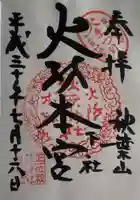 奉拝
秋葉山
火防本宮
下社
平成三十年七月十六日